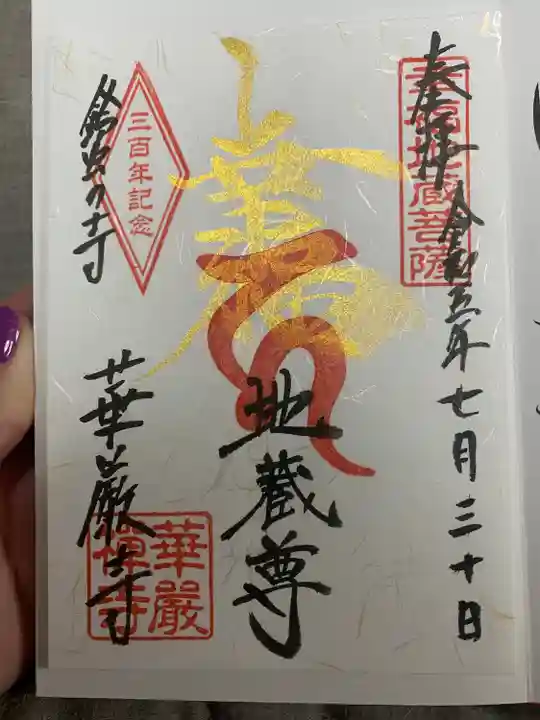 奉拝 令和五年七月三十日
幸福地蔵菩薩
幸福
地蔵尊
三百年記念
鈴虫の寺
華厳寺
華嚴
禪寺